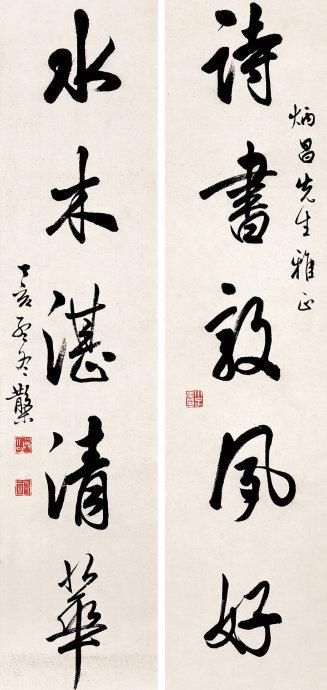 詩書敦夙好
炳昌先生雅正
水木湛清華
丁亥孟冬